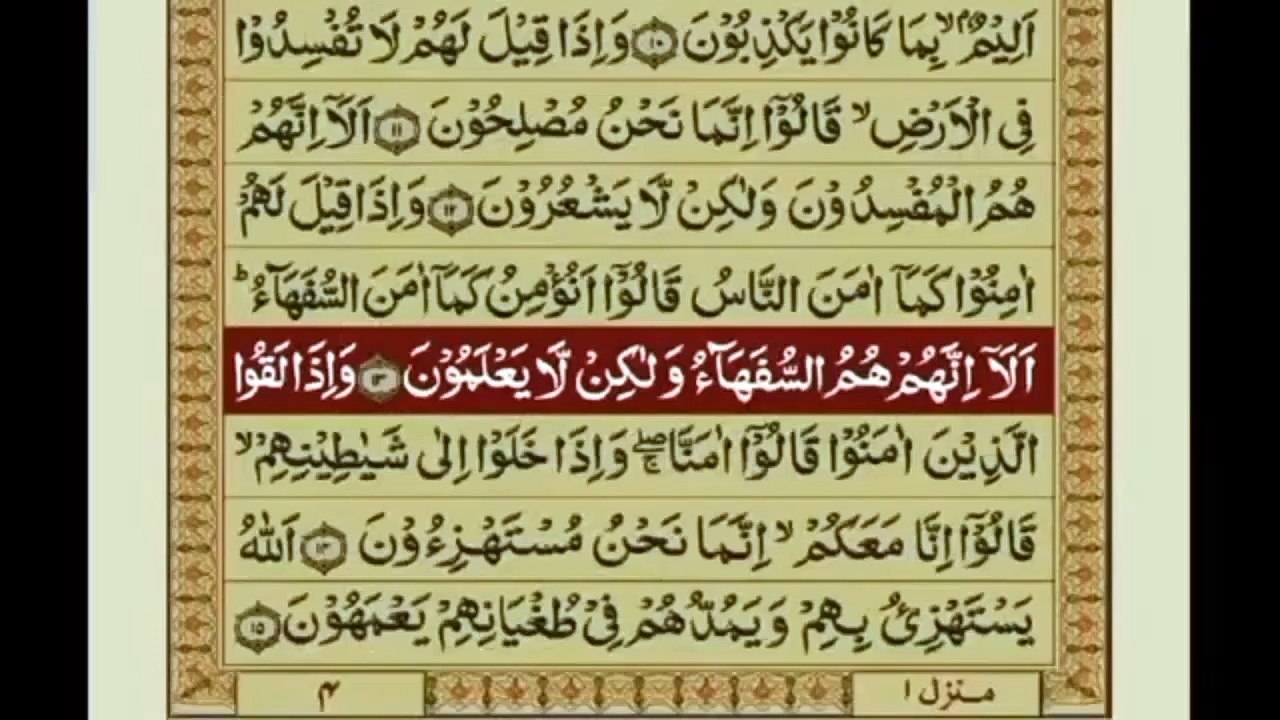 اَلِيْمٌۢ ۙ بِمَا كَانُوْا يَكْذِبُوْنَ ۝۱۰ وَ اِذَا قِيْلَ لَهُمْ لَا تُفْسِدُوْا
فِي الْاَرْضِ ۙ قَالُوْۤا اِنَّمَا نَحْنُ مُصْلِحُوْنَ ۝۱۱ اَلَاۤ اِنَّهُمْ
هُمُ الْمُفْسِدُوْنَ وَلٰكِنْ لَّا يَشْعُرُوْنَ ۝۱۲ وَ اِذَا قِيْلَ لَهُمْ
اٰمِنُوْا كَمَاۤ اٰمَنَ النَّاسُ قَالُوْۤا اَنُؤْمِنُ كَمَاۤ اٰمَنَ السُّفَهَآءُ ؕ
اَلَاۤ اِنَّهُمْ هُمُ السُّفَهَآءُ وَلٰكِنْ لَّا يَعْلَمُوْنَ ۝۱۳ وَ اِذَا لَقُوا
الَّذِيْنَ اٰمَنُوْا قَالُوْۤا اٰمَنَّا ۖۚ وَ اِذَا خَلَوْا اِلٰى شَيٰطِيْنِهِمْ ۙ
قَالُوْۤا اِنَّا مَعَكُمْ ۙ اِنَّمَا نَحْنُ مُسْتَهْزِءُوْنَ ۝۱۴ اَللّٰهُ
يَسْتَهْزِئُ بِهِمْ وَ يَمُدُّهُمْ فِيْ طُغْيَانِهِمْ يَعْمَهُوْنَ ۝۱۵
منزل ۱
۴